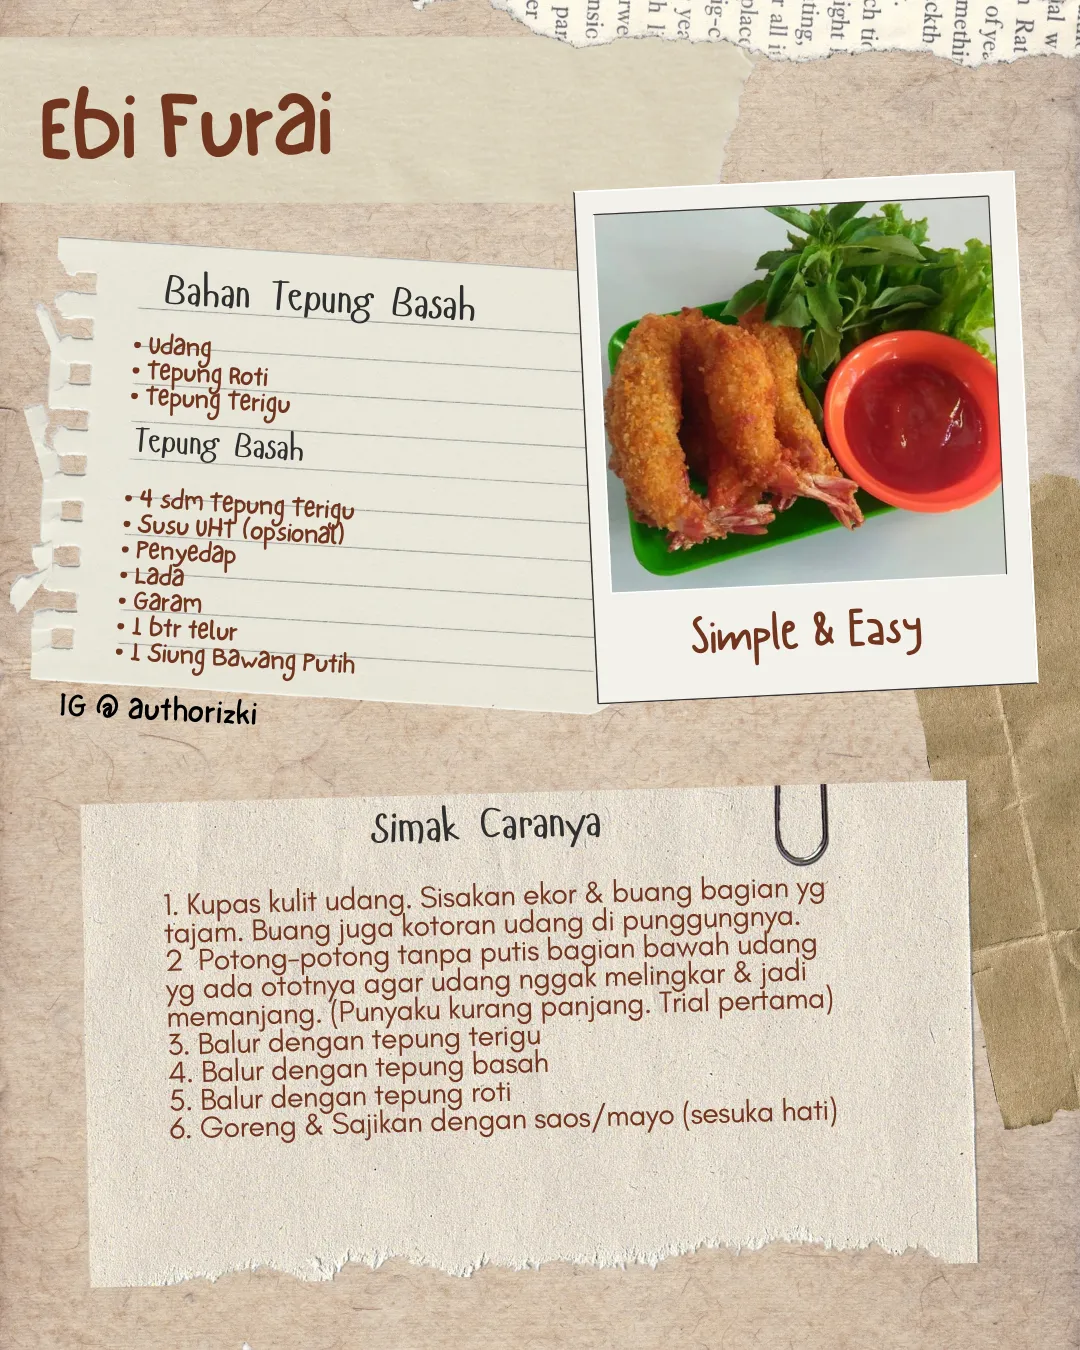 Ebi Furai
Bahan Tepung Basah
• Udang
• Tepung Roti
• Tepung Terigu
Tepung Basah
• 4 sdm tepung terigu
• Susu UHT (opsional)
• Penyedap
• Lada
• Garam
• 1 btr telur
• 1 Siung Bawang Putih
Simple & Easy
IG @ authorizki
Simak Caranya
1. Kupas kulit udang. Sisakan ekor & buang bagian yg
tajam. Buang juga kotoran udang di punggungnya.
2 Potong-potong tanpa putis bagian bawah udang
yg ada ototnya agar udang nggak melingkar & jadi
memanjang. (Punyaku kurang panjang. Trial pertama)
3. Balur dengan tepung terigu
4. Balur dengan tepung basah
5. Balur dengan tepung roti
6. Goreng & Sajikan dengan saos/mayo (sesuka hati)